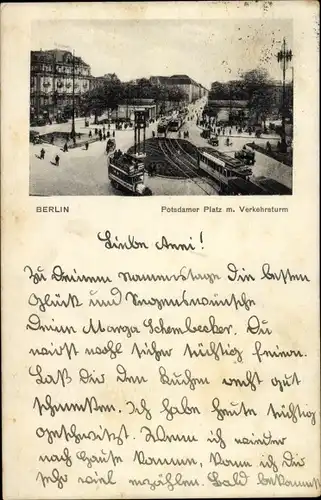 BERLIN
Potsdamer Platz m. Verkehrsturm
Liebe Anni!
Zu Deinem Namenstage die besten
Glück und Segenswünsche
Deine Marga Schembecker. Du
wirst wohl sicher tüchtig feiern.
Laß Dir den Kuchen recht gut
schmecken. Ich habe heute tüchtig
geschwitzt. Wenn ich wieder
nach Hause komme, kann ich dir
sehr viel erzählen. Bald bekommst